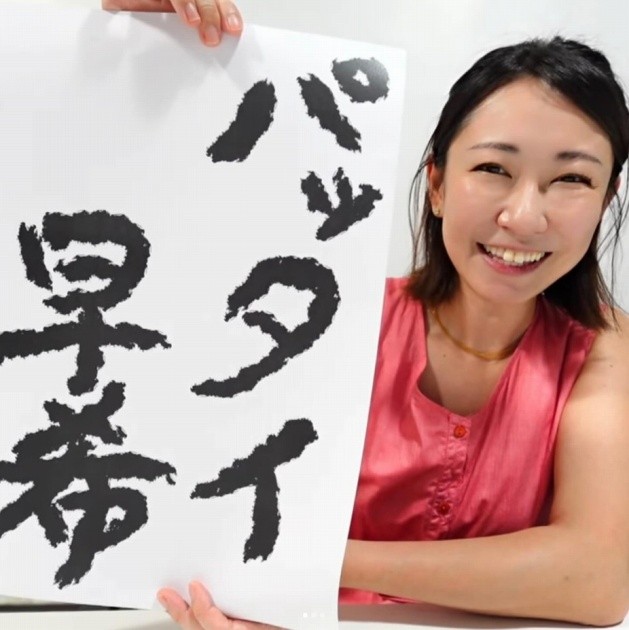 パッタイ
早希